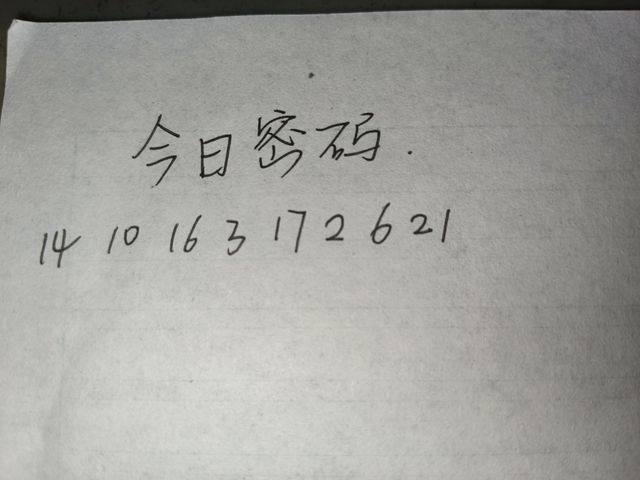 今日密码.
14 10 16 3 17 2 6 21